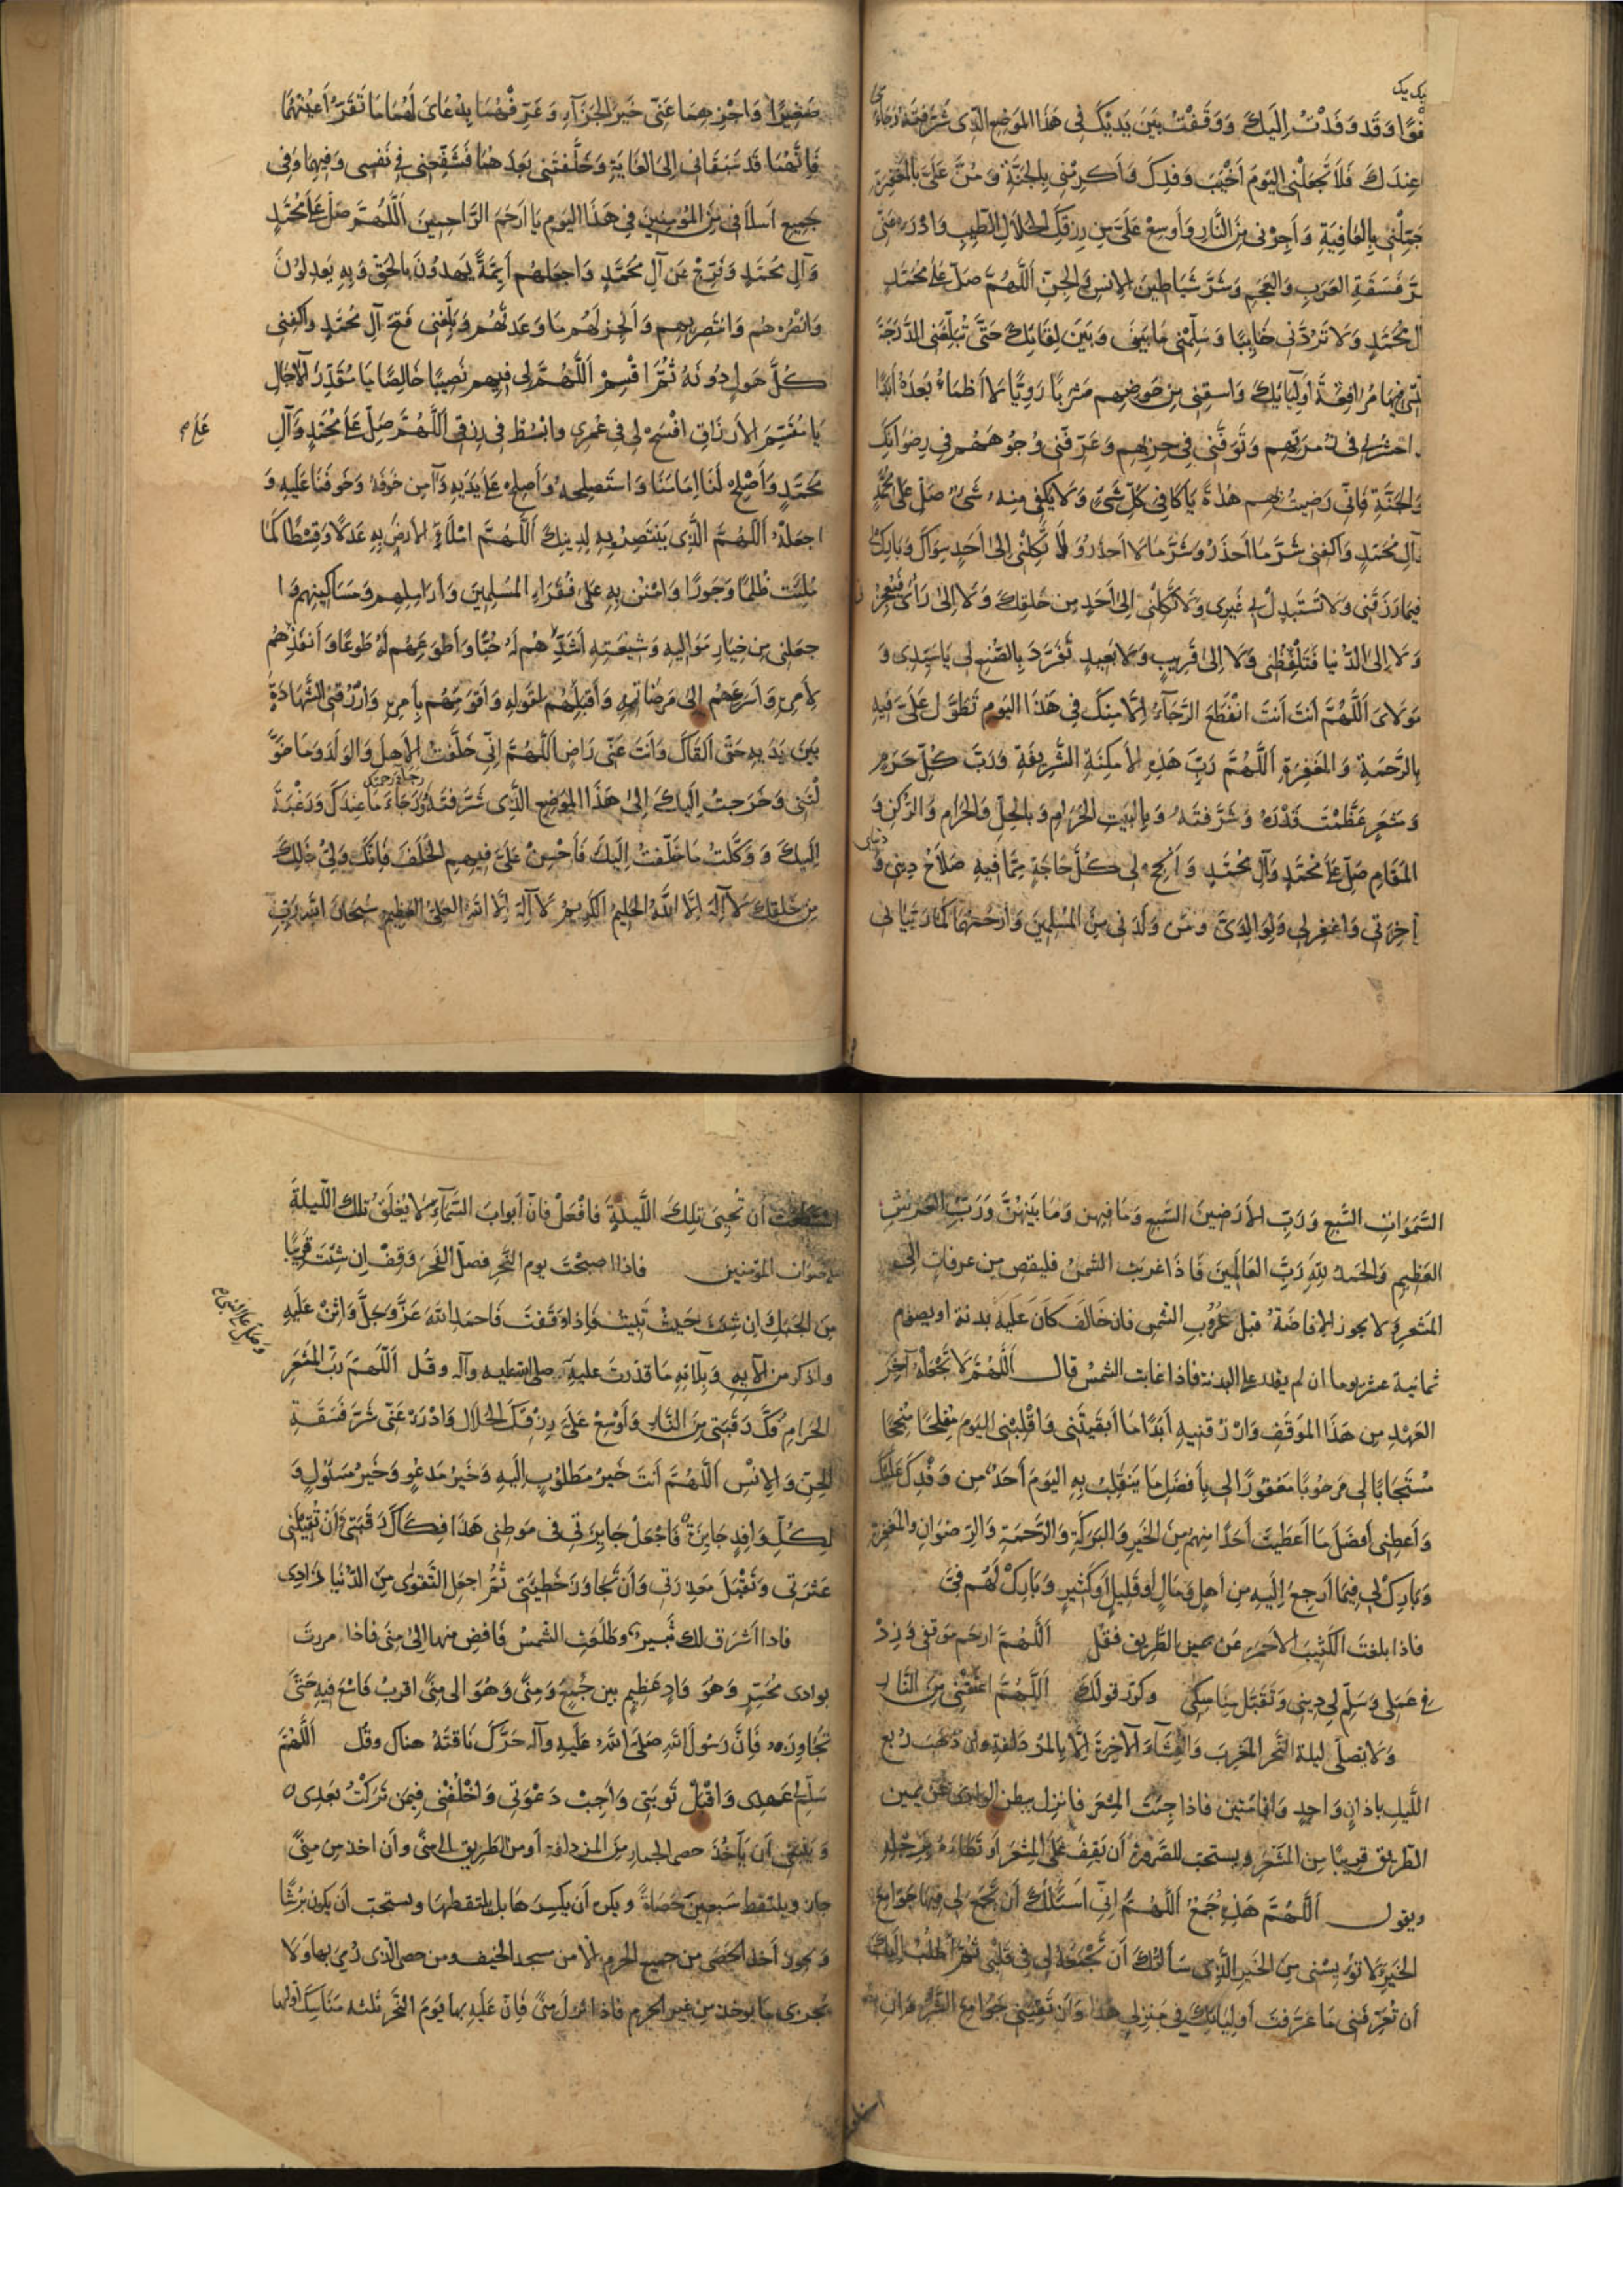 بيديك
فوًا وَقَد وَفَدْتُ إِلَيكَ وَوَقَفْتُ بَيَنَ يَدَيْكَ فِى هَذَا المَوضِعِ الَّذِى شَرَّفتَهُ رَجَاءً
عِندَكَ فَلَا تَجعَلْنِى اليَومَ أَخْيَبَ وَفدِكَ وَأَكرِمْنِى بِالجَنَّةِ وَمُنَّ عَلَىَّ بِالمَغفِرَةِ
جَمِّلْنِى بِالعَافِيَةِ وَأَجِرْنِى مِنَ النَّارِ وَأَوسِعْ عَلَىَّ مِن رِزقِكَ الحَلَالِ الطَّيِّبِ وَادْرَء عَنِّى
شَرَّ فَسَقَةِ العَرَبِ وَالعَجَمِ وَشَرَّ شَيَاطِينِ الإِنسِ وَالجِنِّ اَللَّهُمَّ صَلِّ عَلَى مُحَمَّدٍ
آلِ مُحَمَّدٍ وَلَا تَرُدَّنِى خَايِبًا وَسَلِّمْنِى مَا بَينِى وَبَيَنَ لِقَائِكَ حَتَّى تُبَلِّغَنِى الدَّرَجَةَ
الَّتِى فِيهَا مُرَافَقَةُ أَولِيَايِكَ وَاسقِنِى مِن حَوضِهِم مَشرَبًا رَوِيًّا لَا أَظمَاءُ بَعدَهُ أَبَدًا
وَاحشُرنِى فِى زُمرَتِهِم وَتَوَفَّنِى فِى حِزبِهِم وَعَرِّفْنِى وُجُوهَهُم فِى رِضوَانِكَ
وَالجَنَّةِ فَإِنِّى رَضِيتُ بِهِم هُدَاةً يَا كَافِىَ كُلِّ شَىءٍ وَلَا يَكفِى مِنهُ شَىءٌ صَلِّ عَلَى مُحَمَّدٍ
وَآلِ مُحَمَّدٍ وَاكفِنِى شَرَّ مَا أَحذَرُ وَشَرَّ مَا لَا أَحذَرُ وَلَا تَكِلْنِى إِلَى أَحَدٍ سِوَاكَ وَبَارِك لِى
فِيمَا رَزَقتَنِى وَلَا تَستَبدِلْ بِى غَيرِى وَلَا تَكِلْنِى إِلَى أَحَدٍ مِن خَلقِكَ وَلَا إِلَى رَأيِى فَيُعجِزَنِى
وَلَا إِلَى الدُّنيَا فَتَلفِظُنِى وَلَا إِلَى قَرِيبٍ وَلَا بَعِيدٍ تَفَرَّدْ بِالصُّنعِ لِى يَا سَيِّدِى وَ
مَولَاىَ اَللَّهُمَّ أَنتَ أَنتَ انقَطَعَ الرَّجَآءُ إِلَّا مِنكَ فِى هَذَا اليَومِ تَطَوَّل عَلَىَّ فِيهِ
بِالرَّحمَةِ وَالمَغفِرَةِ اَللَّهُمَّ رَبَّ هَذِهِ الأَمكِنَةِ الشَّرِيفَةِ وَرَبَّ كُلِّ حَرَمٍ
وَمَشعَرٍ عَظَّمْتَ قَدْرَهُ وَشَرَّفتَهُ وَبِالبَيتِ الحَرَامِ وَبِالحِلِّ وَالحَرَامِ وَالرُّكنِ وَ
المَقَامِ صَلِّ عَلَى مُحَمَّدٍ وَآلِ مُحَمَّدٍ وَأَنجِحْ لِى كُلَّ حَاجَةٍ مِمَّا فِيهِ صَلَاحُ دِينِى وَ
دنياى
آخِرَتِى وَاغفِرلِى وَلِوَالِدَىَّ وَمَن وَلَدَنِى مِنَ المُسلِمِينَ وَارحَمهُمَا كَمَا رَبَّيَانِى
صَغِيرًا وَاجْزِهِمَا عَنِّى خَيرَ الجَزَآءِ وَعَرِّفْهُمَا بِدُعَاىَ لَهُمَا مَا تَقَرُّ أَعيُنُهُمَا
فَإِنَّهُمَا قَد سَبَقَانِى إِلَى الغَايَةِ وَخَلَّفتَنِى بَعدَهُمَا فَشَفِّعْنِى فِى نَفسِى وَفِيهِمَا وَفِى
جَمِيعِ أَسلَافِى مِنَ المُؤمِنِينَ فِى هَذَا اليَومِ يَا أَرحَمَ الرَّاحِمِينَ اَللَّهُمَّ صَلِّ عَلَى مُحَمَّدٍ
وَآلِ مُحَمَّدٍ وَفَرِّجْ عَن آلِ مُحَمَّدٍ وَاجعَلهُم أَئِمَّةً يَهدُونَ بِالحَقِّ وَبِهِ يَعدِلُونَ
وَانْصُرْهُم وَانتَصِر بِهِم وَأَنجِز لَهُم مَا وَعَدتَهُم وَبَلِّغنِى فَتحَ آلِ مُحَمَّدٍ وَاكفِنِى
كُلَّ هَولٍ دُونَهُ ثُمَّ اقْسِم اَللَّهُمَّ لِى فِيهِم نَصِيبًا خَالِصًا يَا مُقَدِّرَ الآجَالِ
يَا مُقَسِّمَ الأَرزَاقِ افْسَحْ لِى فِى عُمرِى وَابْسُطْ فِى رِزقِى اَللَّهُمَّ صَلِّ عَلَى مُحَمَّدٍ وَآلِ
مُحَمَّدٍ وَأَصْلِحْ لَنَا إِمَامَنَا وَاستَصلِحهُ وَأَصلِح عَلَى يَدَيهِ وَآمِن خَوفَهُ وَخَوفَنَا عَلَيهِ وَ
اجعَلْهُ اَللَّهُمَّ الَّذِى يَنتَصِرُ بِهِ لِدِينِكَ اَللَّهُمَّ امْلَأِ الأَرضَ بِهِ عَدلًا وَقِسطًا كَمَا
مُلِئَت ظُلمًا وَجَورًا وَامْنُن بِهِ عَلَى فُقَرَاءِ المُسلِمِينَ وَأَرَامِلِهِم وَمَسَاكِينِهِم وَا
جعَلنِى مِن خِيَارِ مَوَالِيهِ وَشِيعَتِهِ أَشَدِّهِم لَهُ حُبًّا وَأَطوَعِهِم لَهُ طَوعًا وَأَنفَذِهِم
لِأَمرِهِ وَأَسرَعِهِم إِلَى مَرضَاتِهِ وَأَقبَلِهِم لِقَولِهِ وَأَقوَمِهِم بِأَمرِهِ وَارْزُقْنِى الشَّهَادَةَ
بَيَنَ يَدَيهِ حَتَّى أَلقَاكَ وَأَنتَ عَنِّى رَاضٍ اَللَّهُمَّ إِنِّى خَلَّفتُ الأَهلَ وَالوَلَدَ وَمَا خَوَّ
لْتَنِى وَخَرَجتُ إِلَيكَ إِلَى هَذَا المَوضِعِ الَّذِى شَرَّفتَهُ رَجَاءَ مَا عِندَكَ وَرَغبَةً
إِلَيكَ وَوَكَّلتُ مَا خَلَّفتُ إِلَيكَ فَأَحْسِنْ عَلَىَّ فِيهِمِ الخَلَفَ فَإِنَّكَ وَلِىُّ ذَلِكَ
مِن خَلقِكَ لَا إِلَهَ إِلَّا اللَّهُ الحَلِيمُ الكَرِيمُ لَا إِلَهَ إِلَّا اللَّهُ العَلِىُّ العَظِيمُ سُبحَانَ اللَّهِ رَبِّ
السَّمَوَاتِ السَّبعِ وَرَبِّ الأَرَضِينَ السَّبعِ وَمَا فِيهِنَّ وَمَا بَينَهُنَّ وَرَبِّ العَرشِ
العَظِيمِ وَالحَمدُ لِلَّهِ رَبِّ العَالَمِينَ فَاِذَا غربَت الشمسُ فليفض مِن عرفاتٍ إلى
المَشعرِ وَلا يجوز الإفاضَةُ قبلَ غُرُوبِ الشمسِ فان خَالَفَ كَانَ عَلَيهِ بدنة او يصوم
ثمانية عشر يوما ان لم يقدر على البدنة فاذا غابت الشمسُ قال اَللَّهُمَّ لَا تَجْعَلْهُ آخِرَ
العَهدِ مِن هَذَا المَوقِفِ وَارْزُقنِيهِ أَبَدًا مَا أَبقَيتَنِى وَاقْلِبنِى اليَومَ مُفلِحًا مُنجِحًا
مُستَجَابًا لِى مَرحُومًا مَغفُورًا لِى بِأَفضَلِ مَا يَنقَلِبُ بِهِ اليَومَ أَحَدٌ مِن وَفْدِكَ عَلَيكَ
وَأَعطِنِى أَفضَلَ مَا أَعطَيتَ أَحَدًا مِنهُم مِنَ الخَيرِ وَالبَرَكَةِ وَالرَّحمَةِ وَالرِّضوَانِ وَالمَغفِرَةِ
وَبَارِكْ لِى فِيمَا أَرجِعُ إِلَيهِ مِن أَهلٍ وَمَالٍ أَو قَلِيلٍ أَو كَثِيرٍ وَبَارِكْ لَهُم فِىَّ
فاذا بلغتَ الكَثِيبَ الأحمَرَ عَن يمين الطَّرِيق فقُل اَللَّهُمَّ ارحَم مَوقِفِى وَزِدْ
فِى عَمَلِى وَسَلِّم لِى دِينِى وَتَقَبَّل مَنَاسِكِى وكرّر قولكَ اَللَّهُمَّ اعتِقْنِى مِنَ النَّارِ
وَلَا يصلّى ليلة النَّحر المَغرِبَ وَالعِشَآءَ الآخِرَةَ إِلَّا بِالمزدَلفةِ وإن ذهَبَ ربع
اللَّيلِ باذانٍ وَاحِدٍ وَاقامَتين فاذا جِئتَ المشعَرَ فانزِل ببطنِ الوادِى عَن يمين
الطّريق قريبًا مِنَ المَشعَرِ ويستحبّ للصَّرورَةِ أَن يَقِفَ عَلَى المَشعَرِ أَو يَطَأهُ بِرِجلِهِ
ويقول اَللَّهُمَّ هَذِهِ جُمَعُ اَللَّهُمَّ إِنِّى أَسئَلُكَ أَن تَجمَعَ لِى فِيهَا جَوَامِعَ
الخَيرِ وَلَا تُويِسْنِى مِنَ الخَيرِ الَّذِى سَأَلتُكَ أَن تَجمَعَهُ لِى فِى قَلبِى ثُمَّ أَطلُبُ إِلَيكَ
أَن تُعَرِّفَنِى مَا عَرَّفتَ أَولِيَاءَكَ فِى مَنزِلِى هَذَا وَأَن تَقِيَنِى جَوَامِعَ الشَّرِّ
استطعت أَن تُحيِىَ تِلكَ اللَّيلَةَ فَافْعَلْ فَانّ أَبوابَ السَّمَآءِ لَا يُغلَقُ تلكَ اللّيلَةَ
لِأصوات المؤمنين فاذا اصبحْتَ يوم النَّحرِ فصلّ الفَجرَ وَقِفْ اِن شِئتَ قَرِيبًا
مِنَ الجَبَلِ اِن شِئتَ حَيثُ تَبِيتُ فَإِذَا وَقَفتَ فَاحمَدِ اللَّهَ عَزَّ وَجَلَّ وَاثنِ عَلَيهِ
واذكر من آلآيِهِ وَبَلَائِهِ مَا قَدَرتَ عَلَيهِ صلى الله عليه وآله وقُل اَللَّهُمَّ رَبَّ المَشعَرِ
الحَرَامِ فُكَّ رَقَبَتِى مِنَ النَّارِ وَأَوسِعْ عَلَىَّ رِزقَكَ الحَلَالَ وَادْرَءْ عَنِّى شَرَّ فَسَقَةِ
الجِنِّ وَالإِنسِ اَللَّهُمَّ أَنتَ خَيرُ مَطلُوبٍ إِلَيهِ وَخَيرُ مَدعُوٍّ وَخَيرُ مَسئُولٍ وَ
لِكُلِّ وَافِدٍ جَايِزَةٌ فَاجْعَلْ جَايِزَتِى فِى مَوطِنِى هَذَا فِكَاكَ رَقَبَتِى وَأَن تُقِيلَنِى
عَثرَتِى وَتَقبَلَ مَعذِرَتِى وَأَن تَجَاوَزَ خَطِيئَتِى ثُمَّ اجعَلِ التَّقوَى مِنَ الدُّنيَا زَادِى
فاذا اشرَقَ لك ثَبِيرٌ وَطَلَعَتِ الشَّمسُ فَافِض منها الى مِنى فاذا مررتَ
بوادى مُحَسِّرٍ وَهُوَ وَادٍ عَظِيمٍ بين جُمَعٍ وَمِنًى وَهُوَ الى مِنًى اقربُ فَاسْعَ فِيهِ حَتَّى
تُجَاوِزَهُ فَإِنَّ رَسُولَ اللَّهِ صَلَّى اللَّهُ عَلَيهِ وَآلِهِ حَرَّكَ نَاقَتَهُ هناك وقُل اَللَّهُمَّ
سَلِّم لِى عَهدِى وَاقْبَلْ تَوبَتِى وَأَجِبْ دَعْوَتِى وَاخْلُفْنِى فِيمَن تَرَكتُ بَعدِى
وَينبَغِى أَن يَأخُذَ حصى الجِمارِ مِنَ المزدلفة أو من الطّريق الى مِنًى وأن اخذ مِن مِنًى
جاز ويلتقط سَبعِينَ حَصَاةً ويكره أَن يكسِرَهَا بل يلتقطهَا ويستحبّ أن يكون بُرشًا
وَيجوز أخذ الحَصَى من جميع الحرم إلّا من مسجد الخيف ومن حصى الّذى رُمِىَ بها وَلا
يُجزِى مَا يوخذ من غير الحَرم فاذا نزل مِنًى فَإِنّ عَلَيهِ بها يَومَ النَّحرِ ثلثه مَنَاسِكَ أوّلها